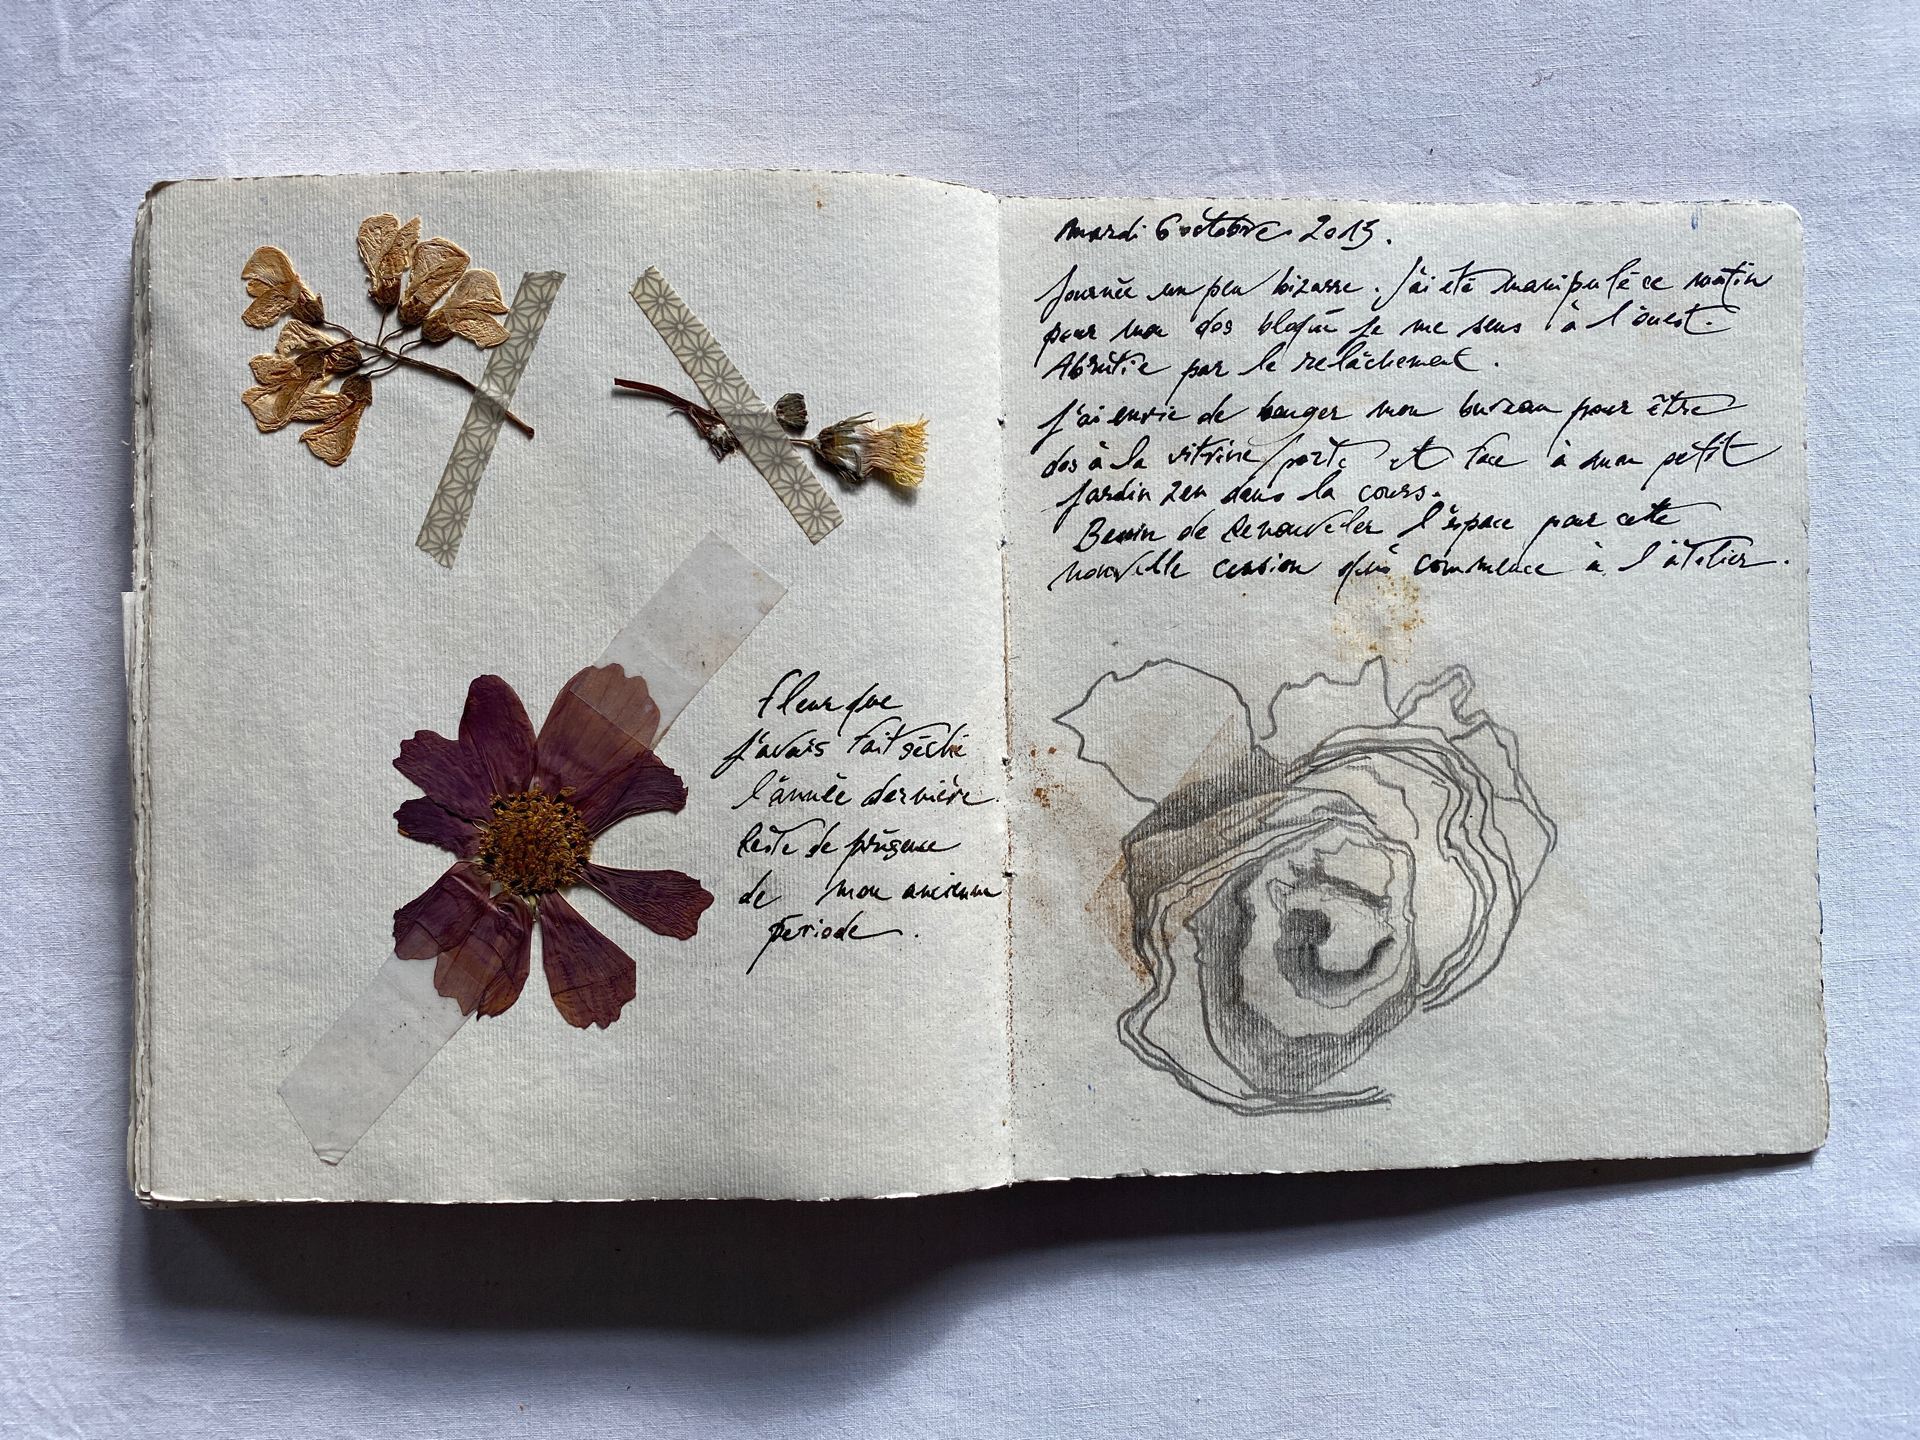 Fleur que
j'avais fait séché
l'année dernière
Reste de
de mon ancienne
période.
mardi 6 octobre 2015.
Journée un peu bizarre. J'ai été manipulé ce matin
pour mon dos bloqué je me sens à l'ouest.
Abrutie par le relâchement.
J'ai envie de bouger mon bureau pour être
dos à la vitrine/porte et face à mon petit
jardin zen dans la cours.
Besoin de Renouveler l'espace pour cette
nouvelle cession qui commence à l'atelier.